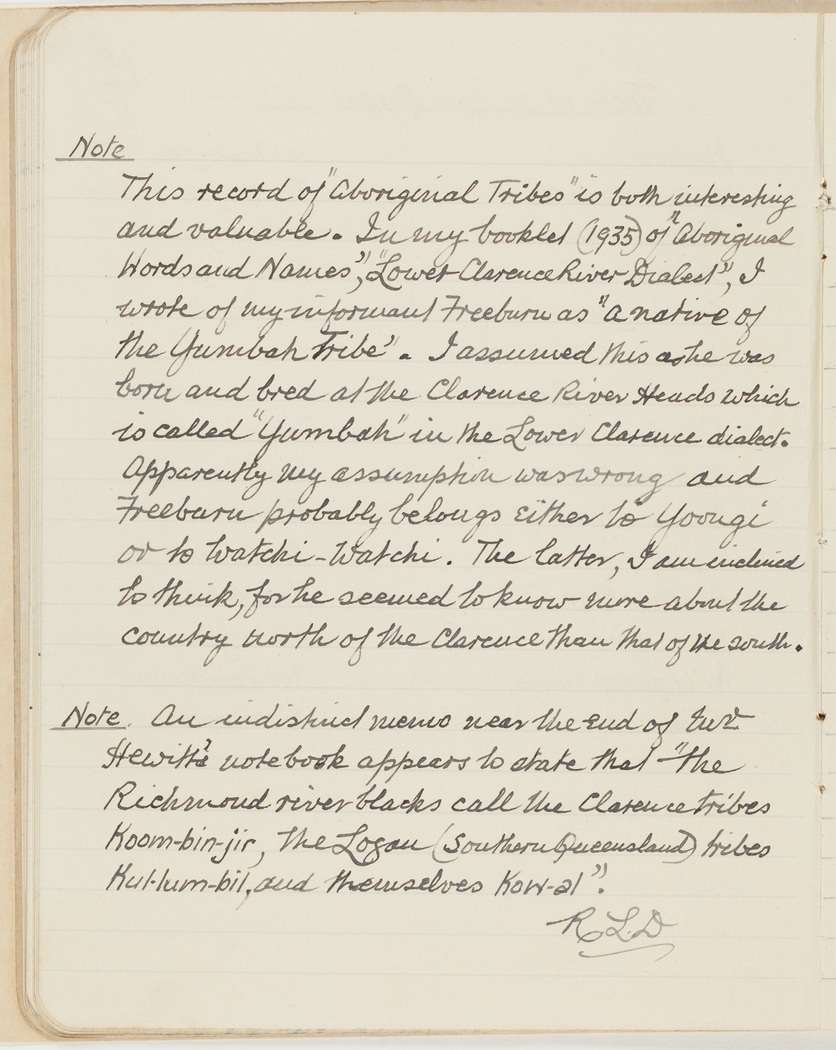 Note
This record of "Aboriginal Tribes" is both interesting
and valuable. In my booklet (1935) of "Aboriginal
Words and Names", "Lower Clarence River Dialect", I
wrote of my informant Freeburn as "a native of
the Yumbah Tribe". I assumed this as he was
born and bred at the Clarence River Heads which
is called "Yumbah" in the Lower Clarence dialect.
Apparently my assumption was wrong and
Freeburn probably belongs either to Yoongi
or to Watchi-Watchi. The latter, I am inclined
to think, for he seemed to know more about the
country north of the Clarence than that of the south.
Note. An indistinct memo near the end of Mr
Hewitt's notebook appears to state that "the
Richmond river blacks call the Clarence tribes
Koom-bin-jir, the Logan (Southern Queensland) tribes
Kul-lum-bil, and themselves Kow-al".
R.L.D